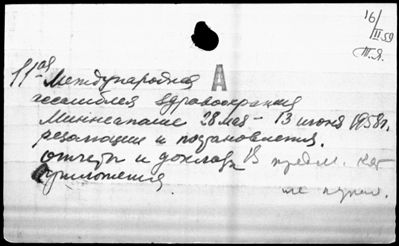 16/
III 59
т.я.
А
11-ая Международная
ассамблея здравоохранения
Миннеаполис 28 мая – 13 июня 1958г.
резолюции и постановления.
отчеты и доклады В предм. кат
приложения не нужна.